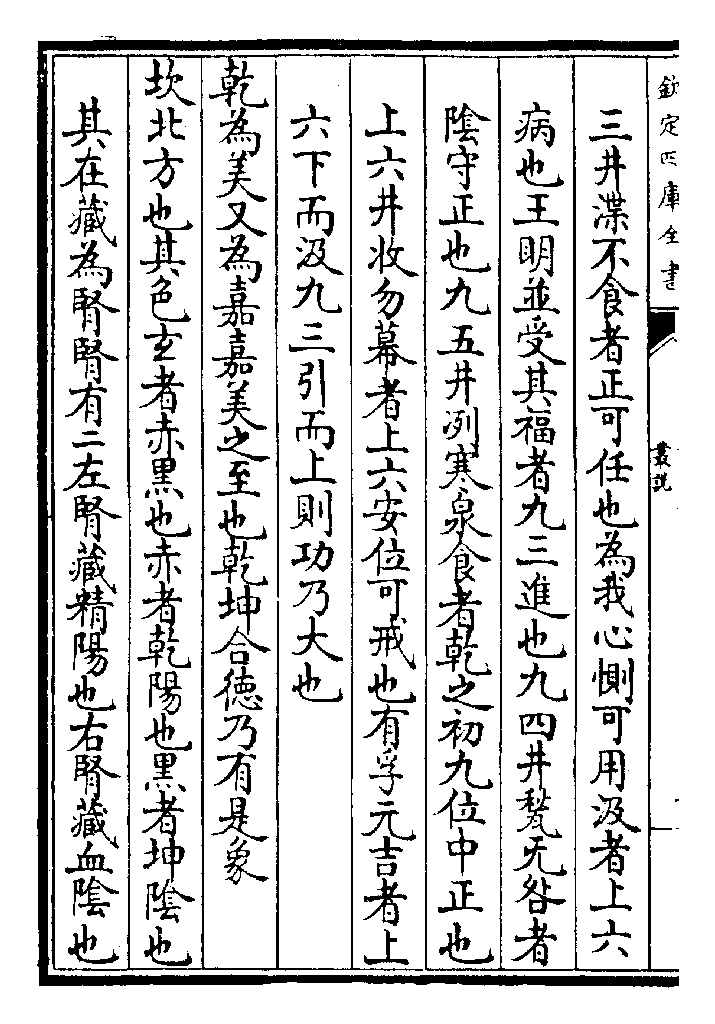 欽定四庫全書
叢説
三井渫不食者正可任也為我心惻可用汲者上六
病也王明並受其福者九三進也九四井甃无咎者
陰守正也九五井冽寒泉食者乾之初九位中正也
上六井收勿幕者上六安位可戒也有孚元吉者上
六下而汲九三引而上則功乃大也
乾為美又為嘉嘉美之至也乾坤合德乃有是象
坎北方也其色玄者赤黒也赤者乾陽也黒者坤陰也
其在藏為腎腎有二左腎藏精陽也右腎藏血陰也